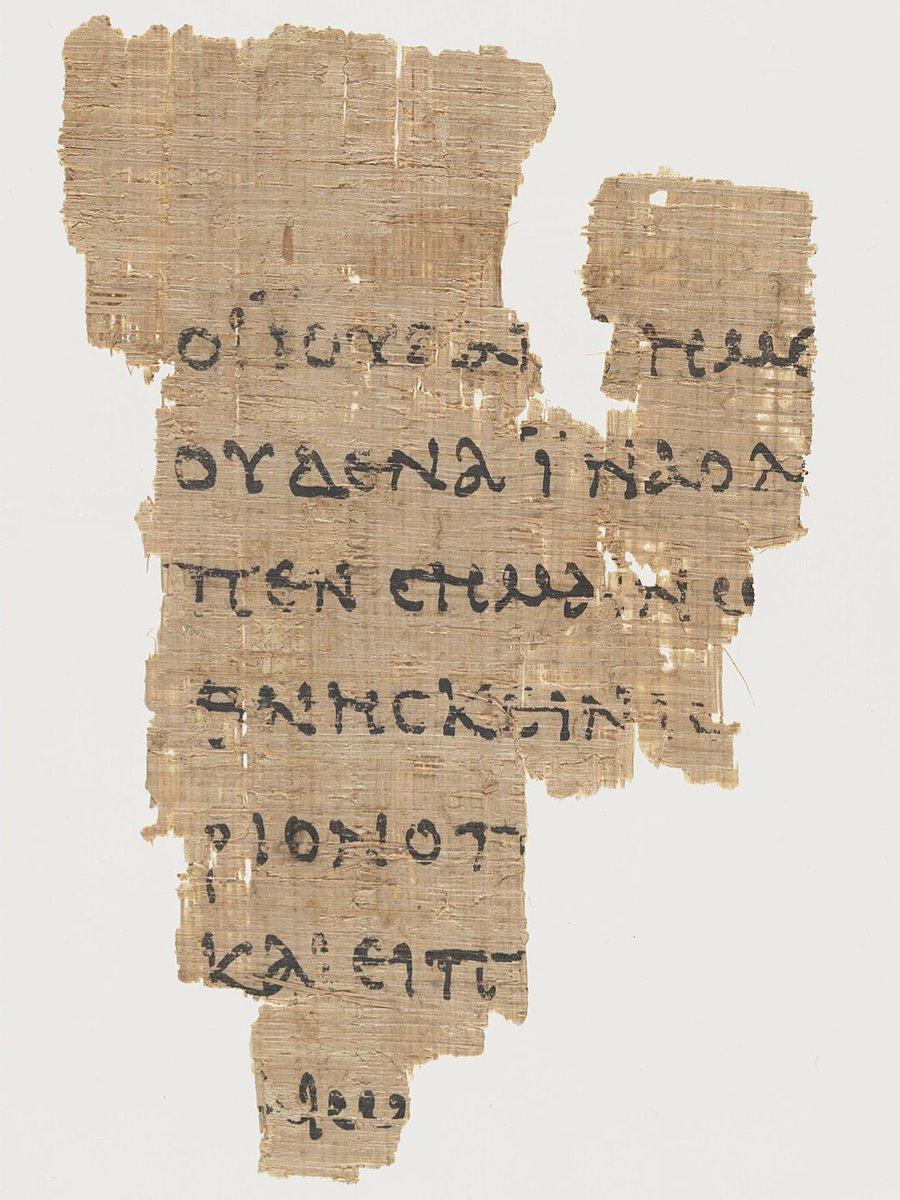 ΟΙ ΪΟΥΔΑΙ ΗΜΕ
ΟΥΔΕΝΑ ΪΝΑ Ο Λ
ΠΕΝ ϹΗΜΑΙΝω
ΘΝΗϹΚΕΙΝ ΙϹ
ΡΙΟΝ Ο Π
ΚΑΙ ΕΙΠ